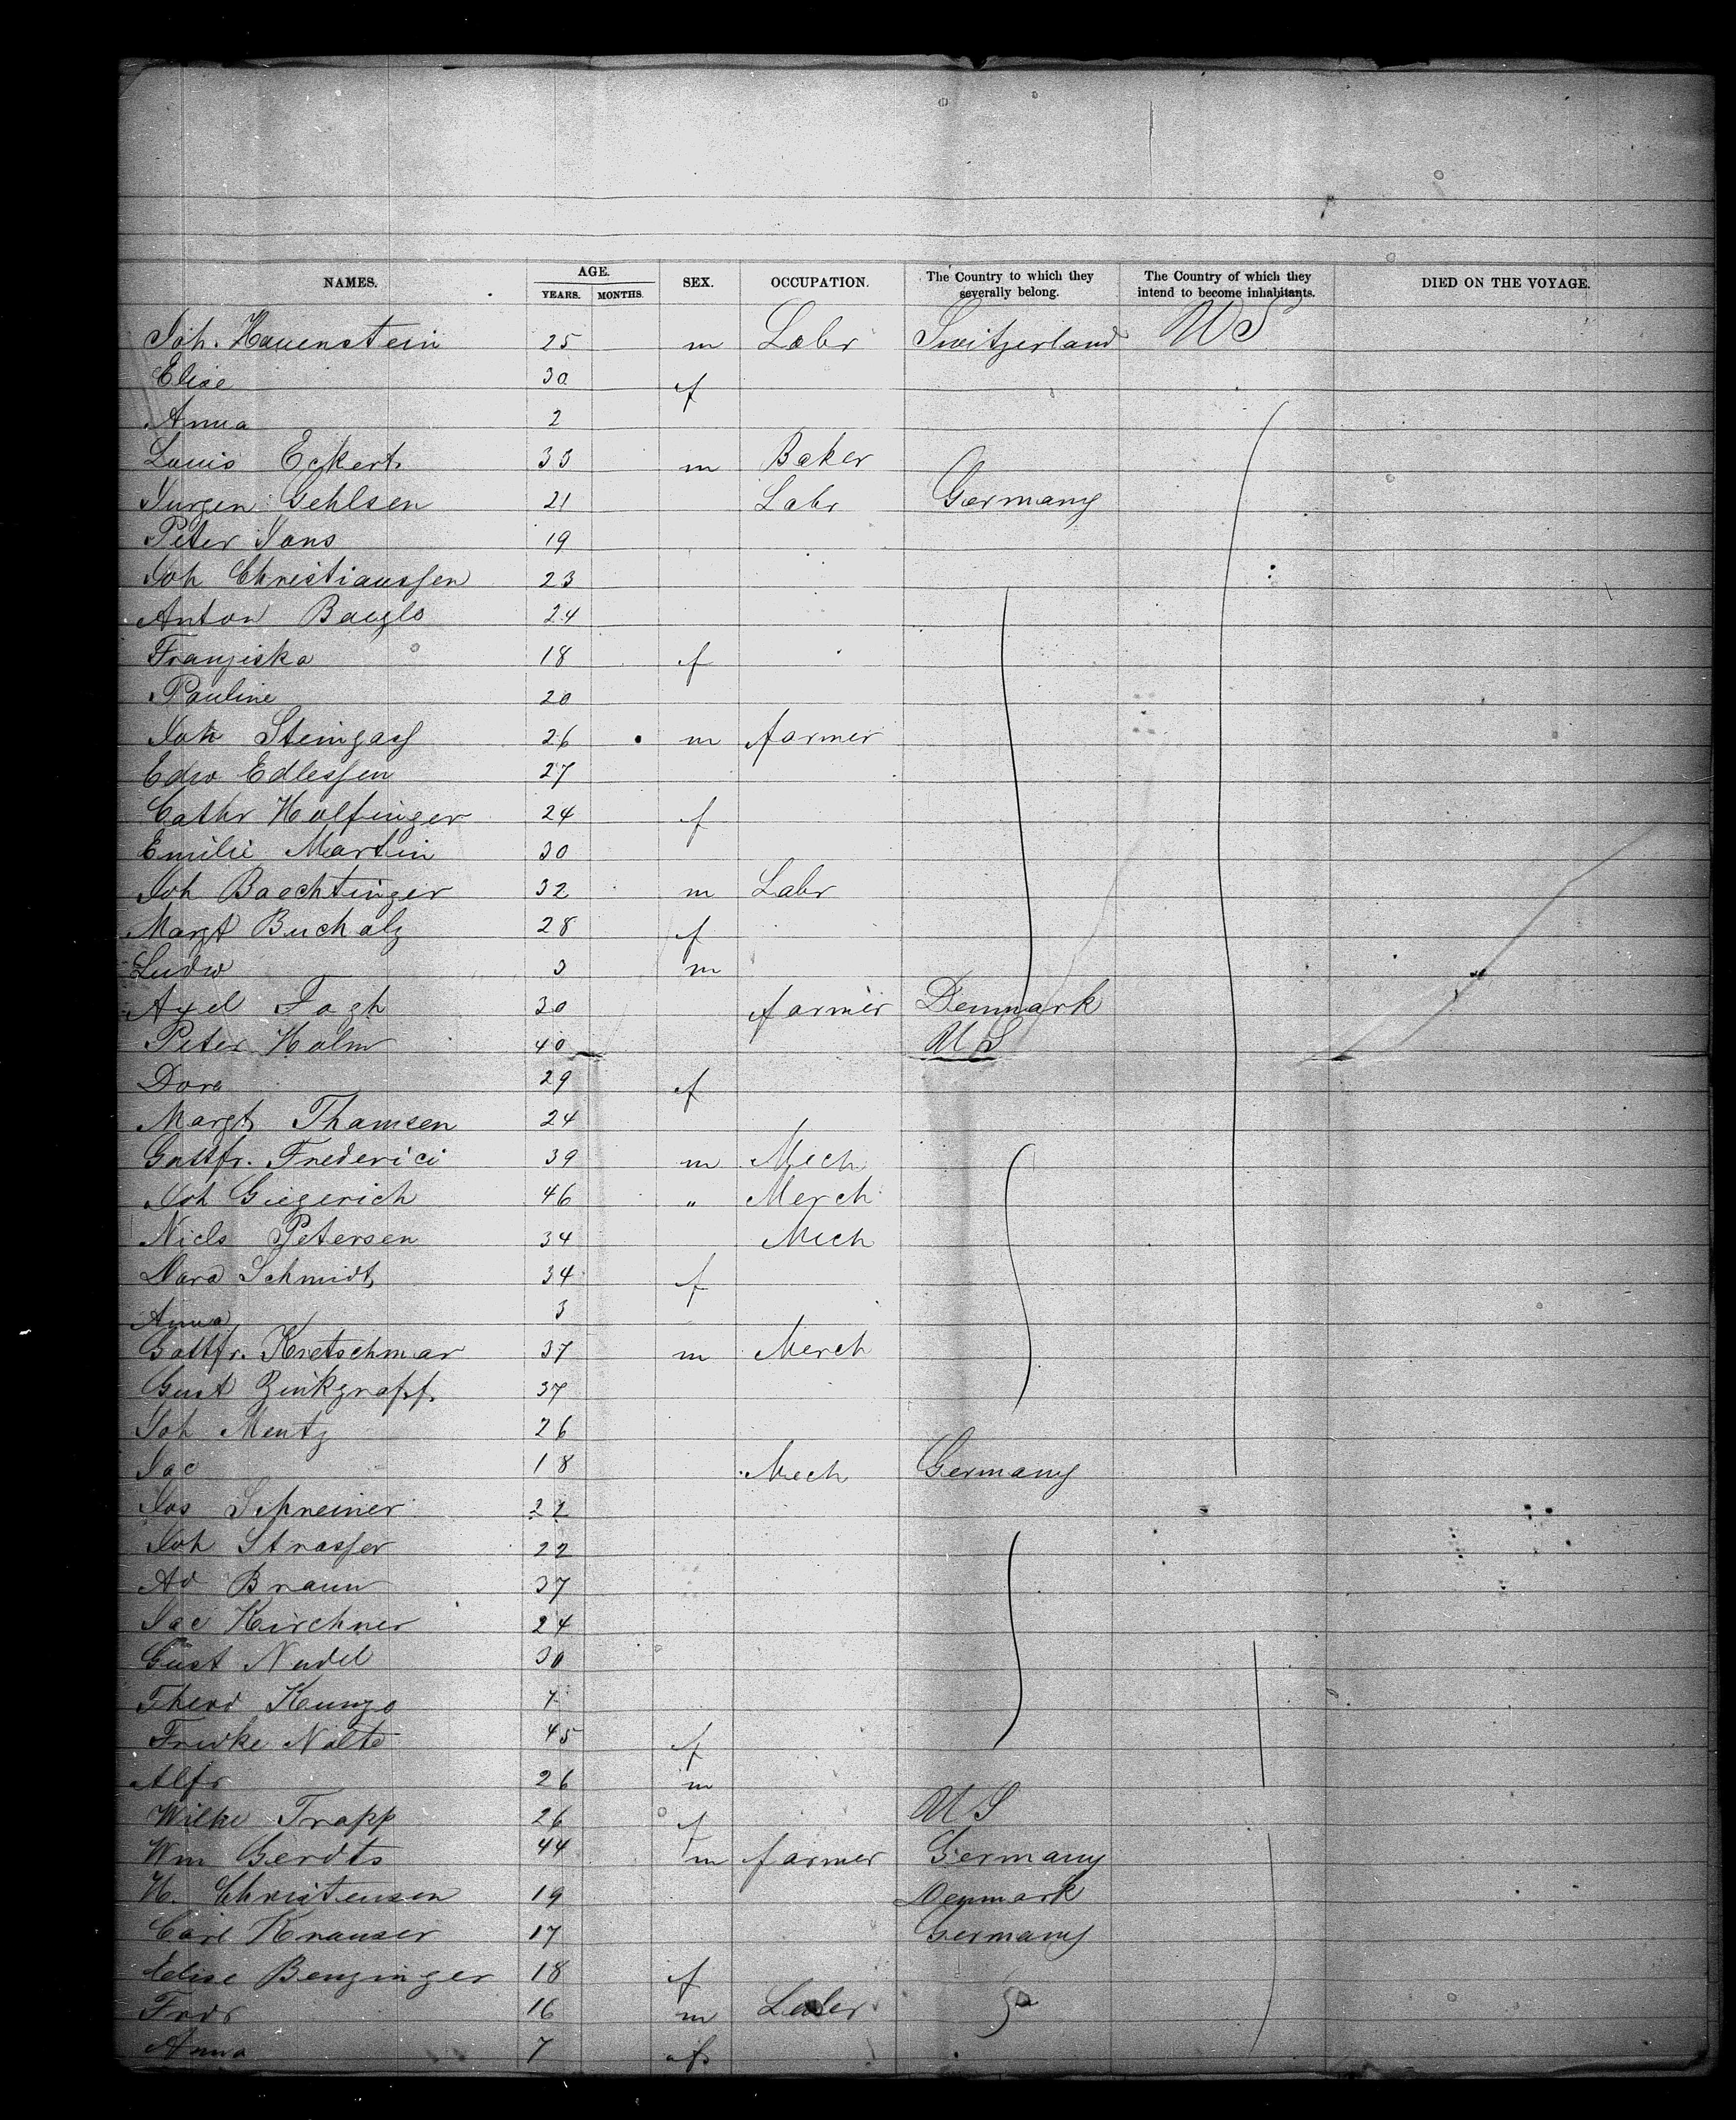 NAMES. AGE. SEX. OCCUPATION. The Country to which they severally belong. The Country of which they intend to become inhabitants. DIED ON THE VOYAGE.
YEARS. MONTHS.
Joh. Hauenstein 25 m Labr Switzerland U S
Elise 30 f
Anna 2
Louis Eckert 33 m Baker
Jurgen Gehlsen 21 Labr Germany
Peter Jans 19
Joh Christianssen 23
Anton 24
Franziska 18 f
Pauline 20
Joh Steingass 26 m farmer
Edw Edlefsen 27
Cathr Holfinger 24 f
Emilie Martin 30
Joh Baechtinger 32 m Labr
Margt Bucholz 28 f
Ludw 3 m
Axel Fogh 30 farmer Denmark
Peter Holm 40 U S
Dora 29 f
Margt Thomsen 24
Gottfr. Frederici 39 m Mech
Joh Giegerich 46 " Merch
Niels Petersen 34 Mech
Dora Schmidt 34 f
Anna 3
Gottfr. Kretschmar 37 m Merch
Gust Zinkgraff 37
Joh Mentz 26
Jac 18 Mech Germany
Jos Schreiner 22
Joh Strasser 22
Ad Braun 37
Jac Kirchner 24
Gust Nudel 30
Theod Kunze 7
Fridke Nolte 45 f
Alfr 26 m
Wilhe Trapp 26 f U S
Wm Gerdts 44 m farmer Germany
H. Christensen 19 Denmark
Carl Knauser 17 Germany
Elise Benzinger 18 f
Fredr 16 m Labr
Anna 7 f